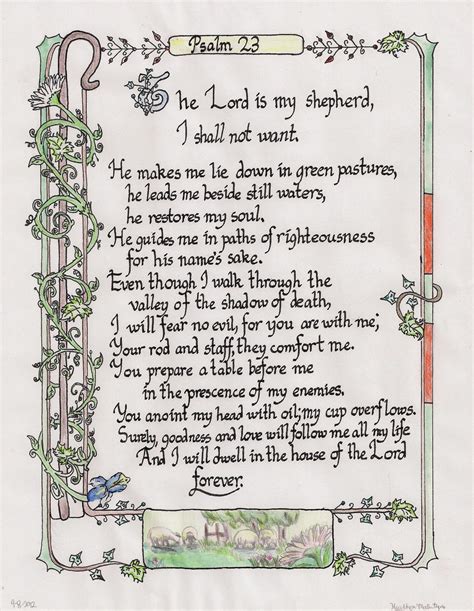 Psalm 23
The Lord is my shepherd,
I shall not want.
He makes me lie down in green pastures,
he leads me beside still waters,
he restores my soul.
He guides me in paths of righteousness
for his name's sake.
Even though I walk through the
valley of the shadow of death,
I will fear no evil, for you are with me;
Your rod and staff, they comfort me.
You prepare a table before me
in the prescence of my enemies.
You anoint my head with oil; my cup overflows.
Surely, goodness and love will follow me all my life
And I will dwell in the house of the Lord
forever.